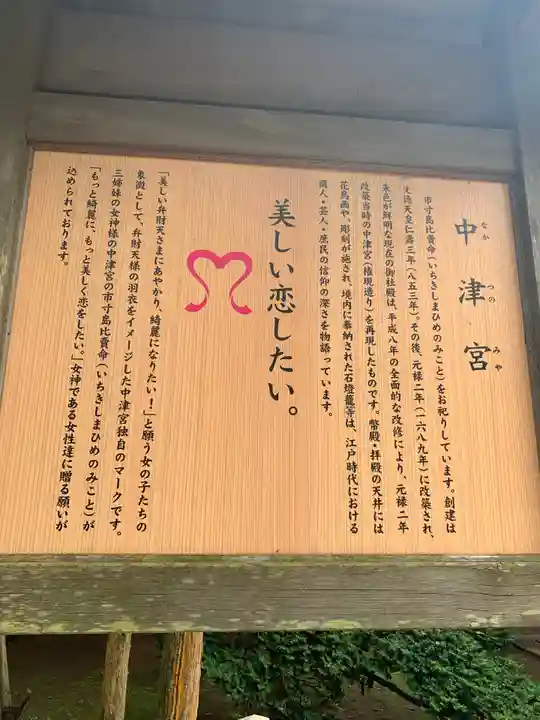 中津宮
なかつのみや
市寸島比賣命（いちきしまひめのみこと）をお祀りしています。創建は
文徳天皇仁壽三年（八五三年）。その後、元禄二年（一六八九年）に改築され、
朱色が鮮明な現在の御社殿は、平成八年の全面的な改修により、元禄二年
改築当時の中津宮（権現造り）を再現したものです。幣殿・拝殿の天井には
花鳥画や、彫刻が施され、境内に奉納された石燈籠等は、江戸時代における
商人・芸人・庶民の信仰の深さを物語っています。
美しい恋したい。
「美しい弁財天さまにあやかり、綺麗になりたい！」と願う女の子たちの
象徴として、弁財天様の羽衣をイメージした中津宮独自のマークです。
三姉妹の女神様の中津宮の市寸島比賣命（いちきしまひめのみこと）が
「もっと綺麗に、もっと美しく恋をしたい。」女神である女性達に贈る願いが
込められております。